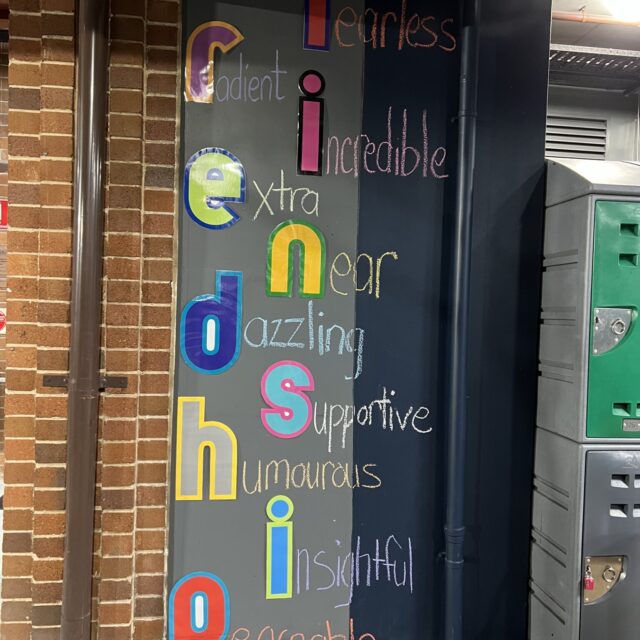 fearless
radient
incredible
extra
near
dazzling
supportive
humourous
insightful